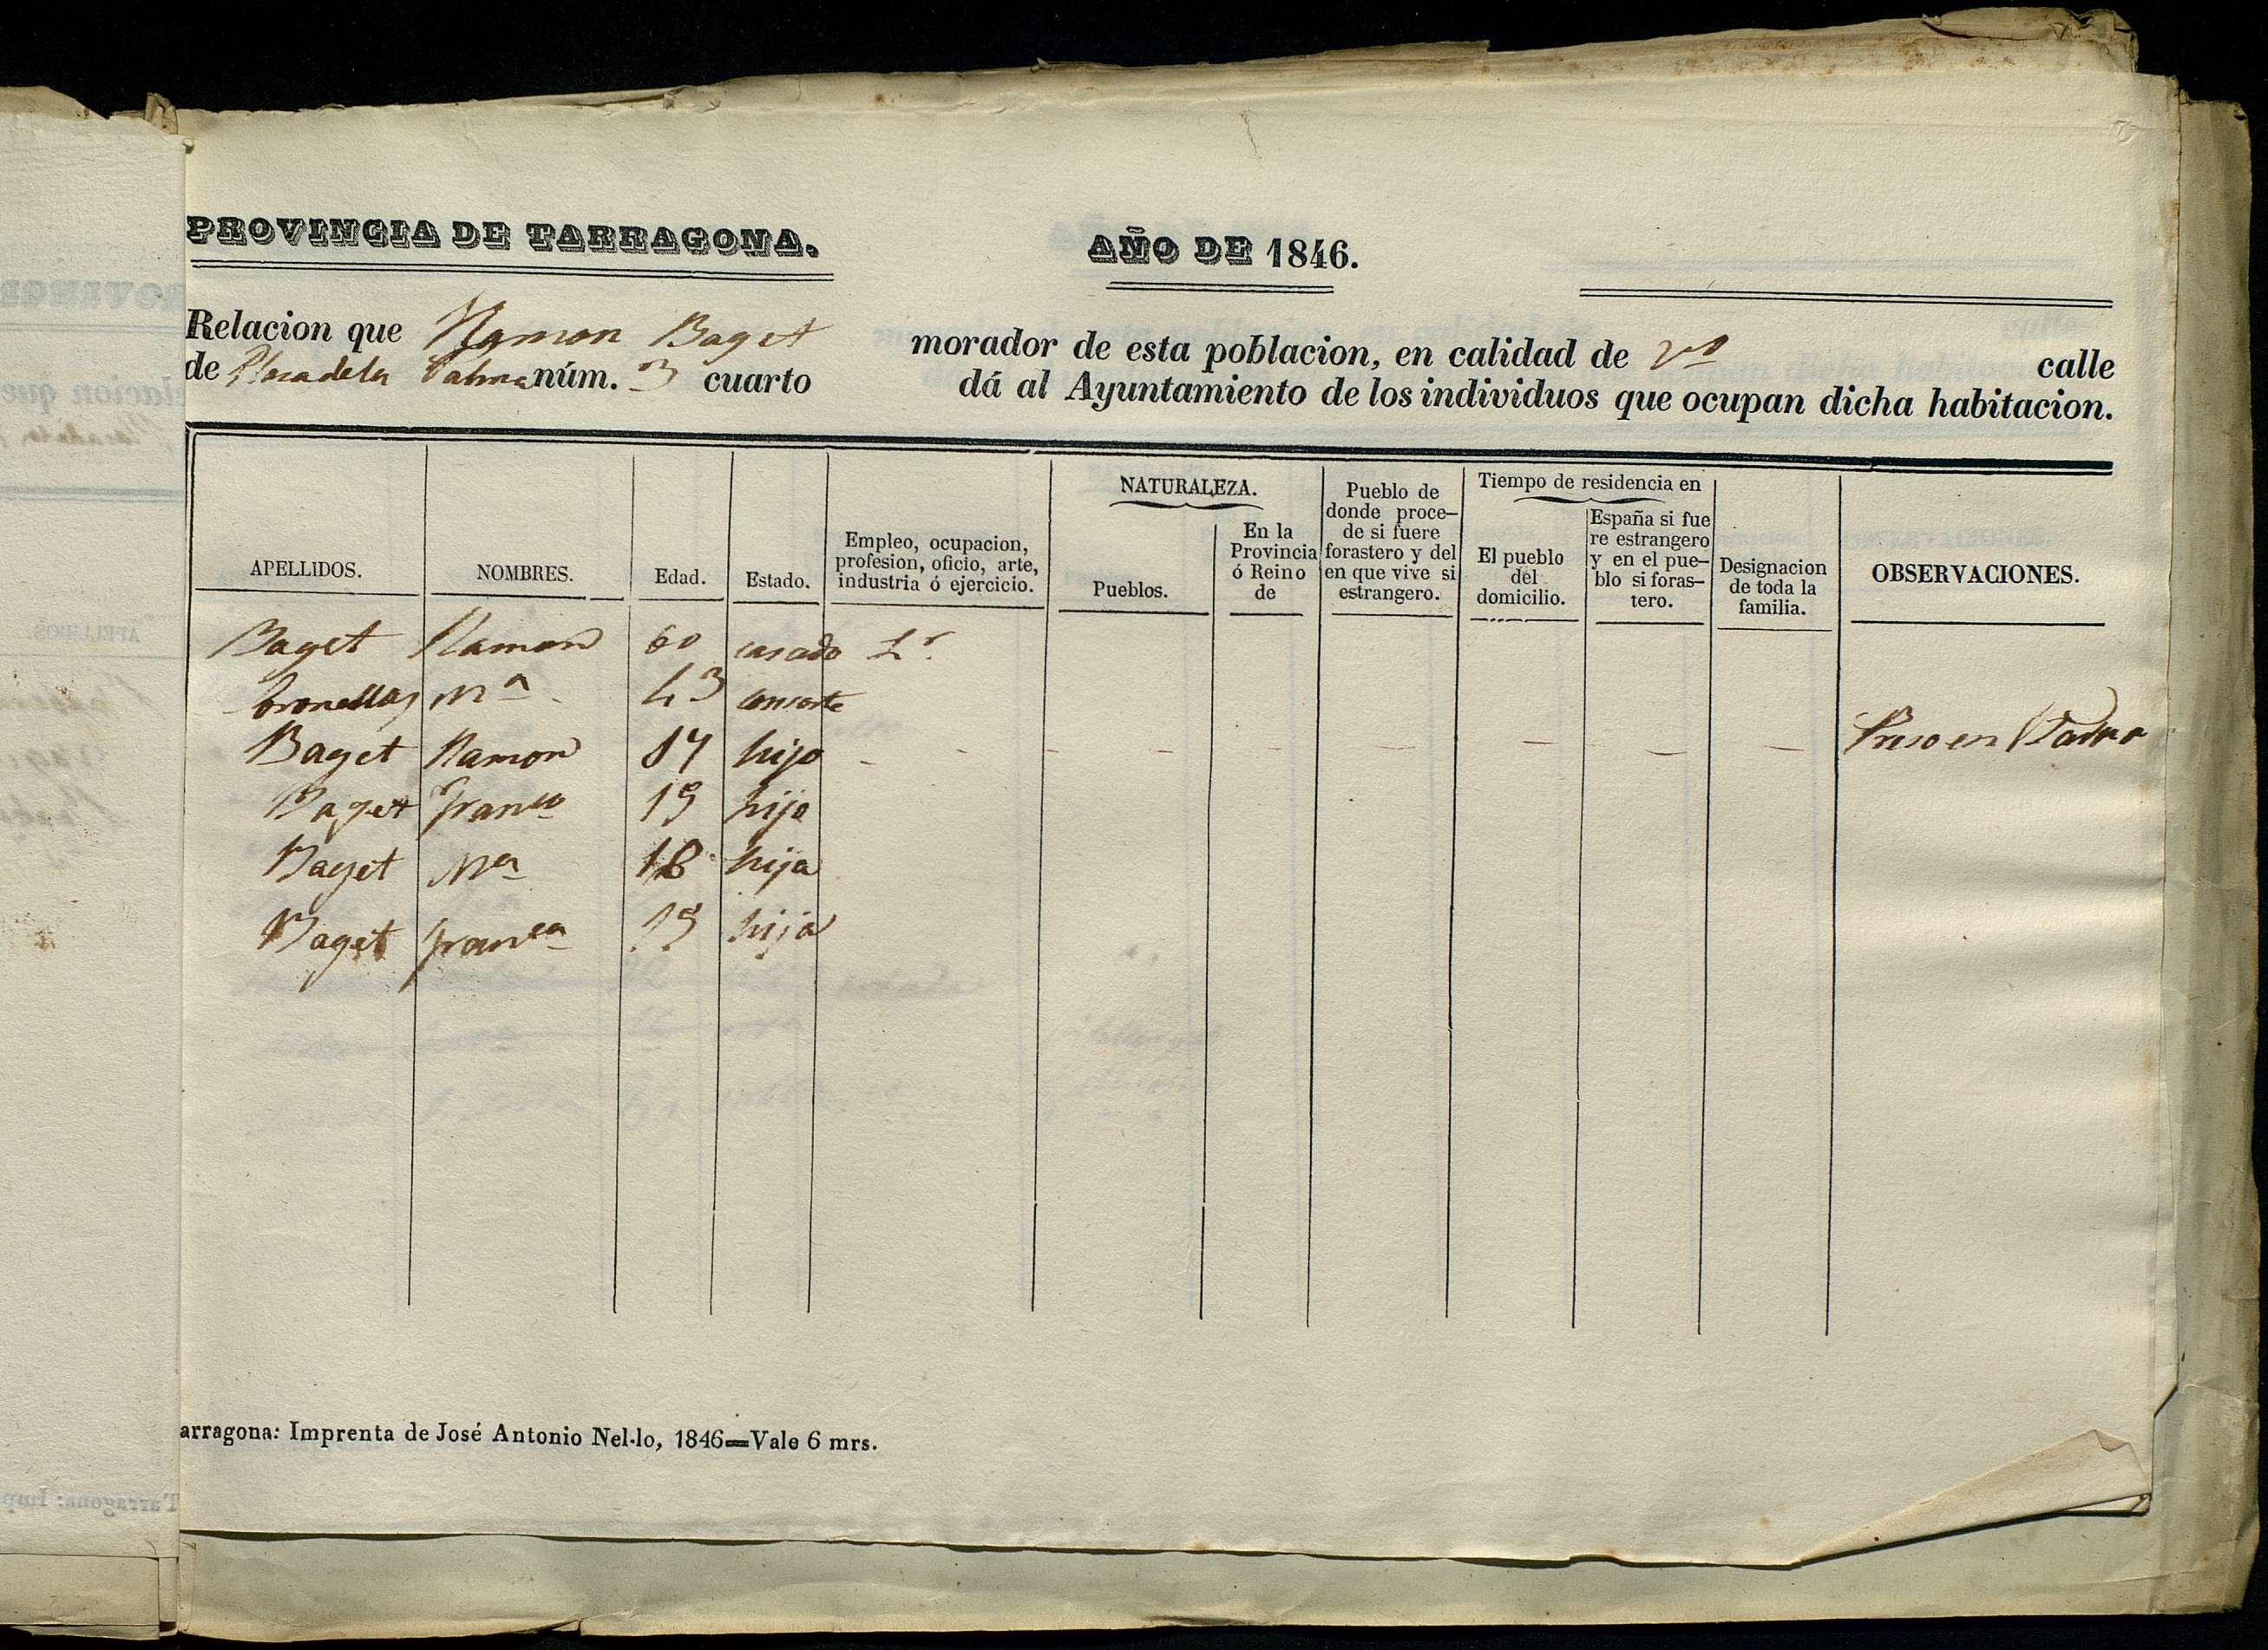 PROVINCIA DE TARRAGONA.
AÑO DE 1846.
Relacion que Ramon Baget morador de esta poblacion, en calidad de vº calle
de Plasa de la Palma núm. 3 cuarto dá al Ayuntamiento de los individuos que ocupan dicha habitacion.
APELLIDOS.
NOMBRES.
Edad.
Estado.
Empleo, ocupacion,
profesion, oficio, arte,
industria ó ejercicio.
NATURALEZA.
Pueblos.
En la
Provincia
ó Reino
de
Pueblo de
donde proce-
de si fuere
forastero y del
en que vive si
estrangero.
Tiempo de residencia en
El pueblo
del
domicilio.
España si fue
re estrangero
y en el pue-
blo si foras-
tero.
Designacion
de toda la
familia.
OBSERVACIONES.
Baget Ramon 60 casado Lr.
Mª 43 consorte
Baget Ramon hijo - - - - - - - - Preso en
Baget Franco 19 hijo
Baget Mª 18 hija
Baget Franca 13 hija
arragona: Imprenta de José Antonio Nel·lo, 1846=Vale 6 mrs.